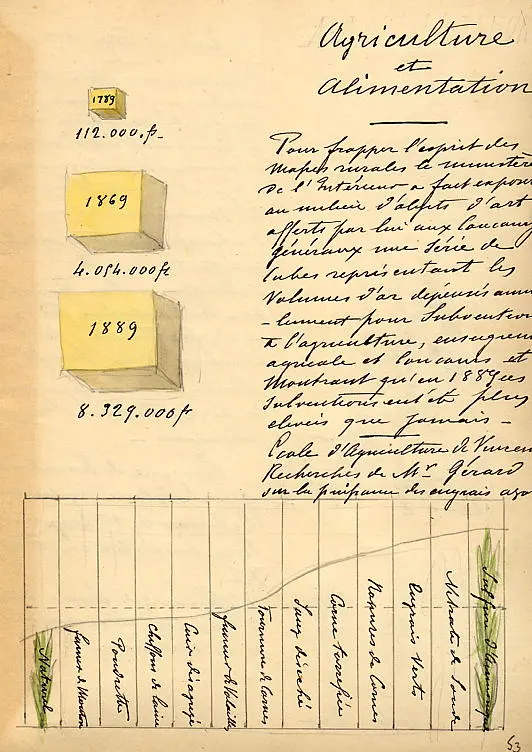 Agriculture
et
Alimentation
1789
112.000.f-
1869
4.054.000f
1889
8.329.000f
Pour frapper l'esprit des
masses rurales le ministère
de l'Intérieur a fait exposer
au milieu d'objets d'art
offerts par lui aux Concours
généraux une série de
Cubes représentant les
Volumes d'or dépensés annu
-lement pour Subvention
à l'agriculture, enseignem
agricole et Concours et
Montrant qu'en 1889 ces
Subventions ont été plus
élevées que jamais -
Ecole d'Agriculture de Vincen
Recherches de Mr Gérard
sur la puissance des engrais azo
Naturel
fumier de Mouton
Poudrette
Chiffons de laine
Cuir désagrégé
fumier de Volailles
Tournure de Cornes
Sang desséché
Corne torréfiée
Rapures de Cornes
Engrais Verts
Nitrate de Soude
Sulfate d'Ammoniaque
53